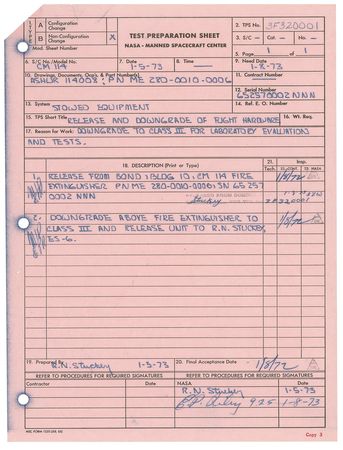 1. TYPE
A Configuration Change
B Non-Configuration Change X
Mod. Sheet Number
TEST PREPARATION SHEET
NASA - MANNED SPACECRAFT CENTER
2. TPS No. 3F320001
3. S/C - Cat. - No.
5. Page 1 of 1
6. S/C No./Model No. CM 114
7. Date 1-5-73
8. Time
9. Need Date 1-8-73
10. Drawings, Documents, Ocp's, & Part Number(s)
11. Contract Number
114008; PN ME 280-0010-0006
12. Serial Number 652570002 NNN
13. System STOWED EQUIPMENT
14. Ref. E. O. Number
15. TPS Short Title RELEASE AND DOWNGRADE OF FLIGHT HARDWARE
16. Wt. Req.
17. Reason for Work: DOWNGRADE TO CLASS III FOR LABORATORY EVALUATION
AND TESTS.
18. DESCRIPTION (Print or Type)
21. Insp.
Tech.
1. RELEASE FROM BOND, BLDG 10, CM 114 FIRE
EXTINGUISHER PN ME 280-0010-0006; SN 65257
0002 NNN
Stuckey 3F320001
2. DOWNGRADE ABOVE FIRE EXTINGUISHER TO
CLASS III AND RELEASE UNIT TO R.N. STUCKEY,
ES-6.
19. Prepared By R.N. Stuckey 1-3-73
Date
20. Final Acceptance Date 1/8/72
REFER TO PROCEDURES FOR REQUIRED SIGNATURES
REFER TO PROCEDURES FOR REQUIRED SIGNATURES
Contractor Date
NASA Date
R.N. Stuckey 1-5-73
925 1-8-73
Copy 3